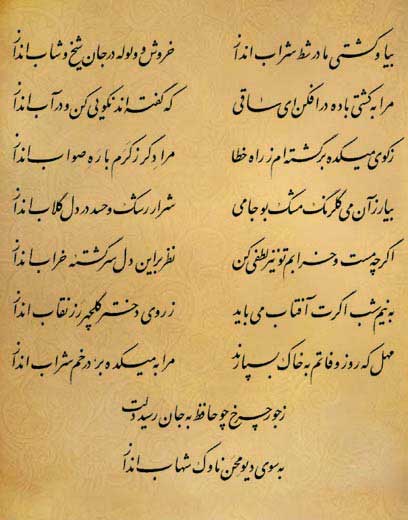 بیا و کشتی ما در شط شراب انداز خروش و ولوله در جان شیخ و شاب انداز
مرا به کشتی باده در افکن ای ساقی که گفته اند نکویی کن و در آب انداز
ز کوی میکده برگشته ام ز راه خطا مرا دگر ز کرم با ره صواب انداز
بیار زآن می گلرنگ مشک بو جامی شرار رشک و حسد در دل گلاب انداز
اگرچه مست و خرابم تو نیز لطفی کن نظر بر این دل سرگشته خراب انداز
به نیم شب اگرت آفتاب می باید ز روی دختر گلچهر رز نقاب انداز
مهل که روز وفاتم به خاک بسپارند مرا به میکده بر در خم شراب انداز
ز جور چرخ چو حافظ به جان رسید دلت
به سوی دیو محن ناوک شهاب انداز